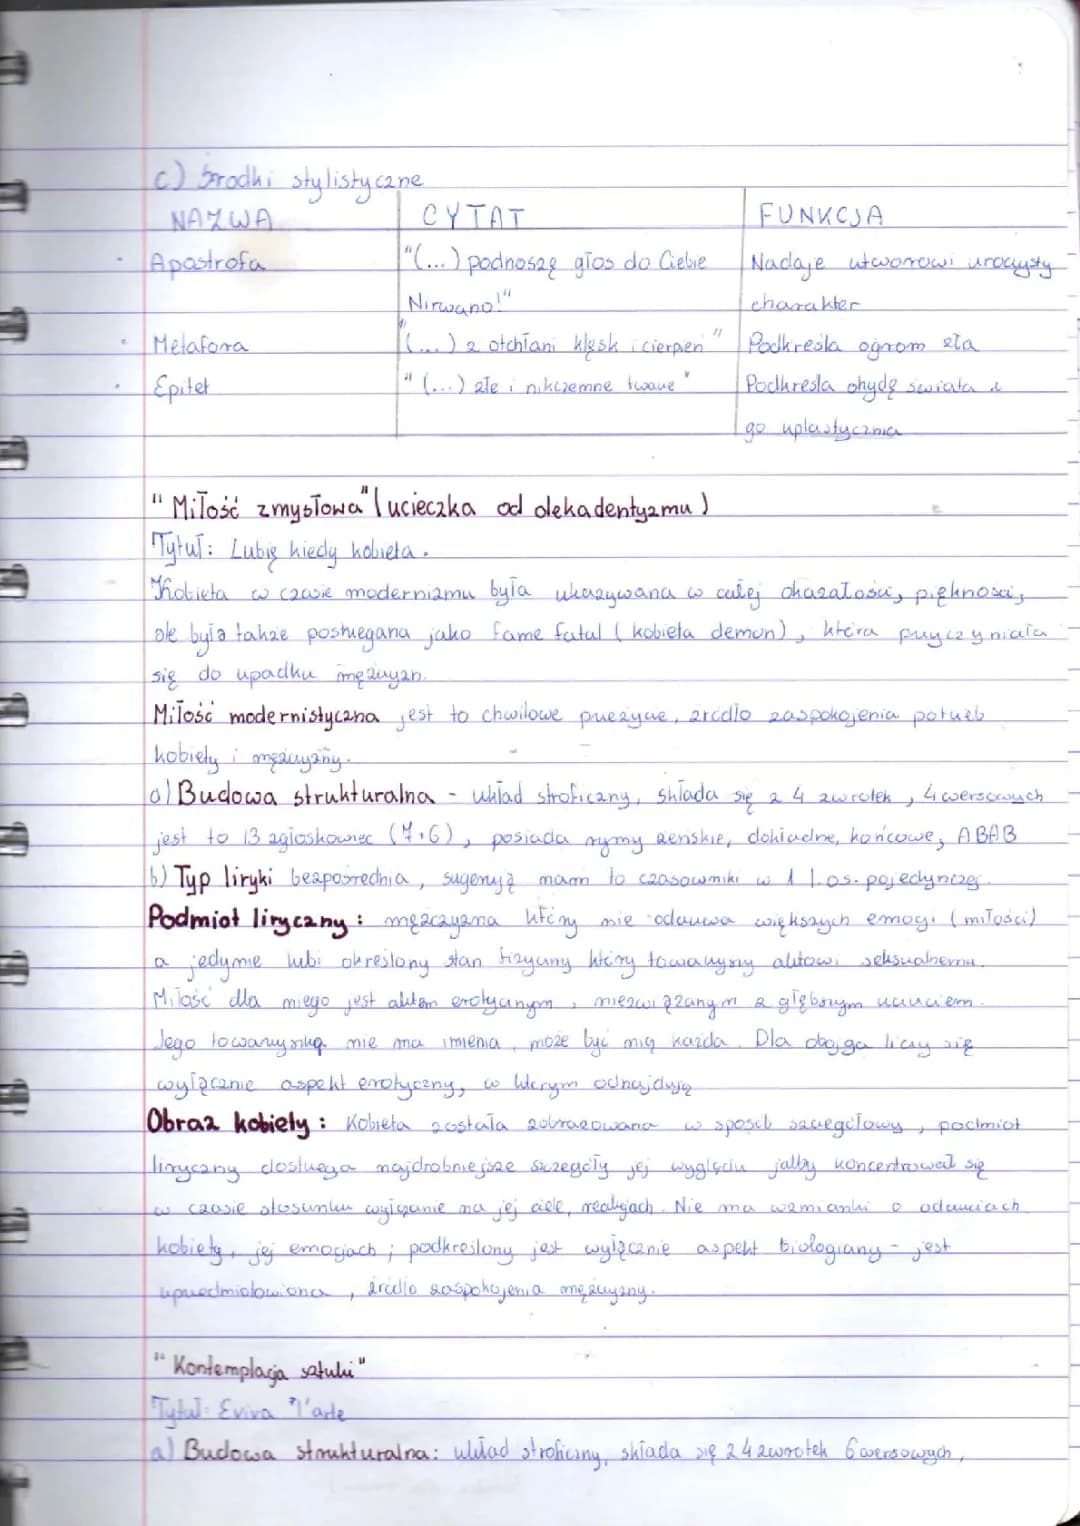 c) Środki stylistyczne
NAZWA CYTAT FUNKCJA
Apostrofa "(...) podnoszę głos do Ciebie Nadaje utworowi uroczysty
Nirwano!" charakter
Metafora "(...) z otchłani klęsk i cierpień" Podkreśla ogrom zła
Epitet "(...) złe i nikczemne twarze" Podkreśla ohydę świata i
go uplastycznia
"Miłość zmysłowa" (ucieczka od dekadentyzmu)
Tytuł: Lubię kiedy kobieta.
Kobieta w czasie modernizmu była ukazywana w całej okazałości, piękności,
ale była także postrzegana jako fame fatal (kobieta demon), która przyczyniała
się do upadku mężczyzn.
Miłość modernistyczna jest to chwilowe przeżycie, źródło zaspokojenia potrzeb
kobiety i mężczyzny.
a) Budowa strukturalna - układ stroficzny, składa się z 4 zwrotek, 4 wersowych
jest to 13 zgłoskowiec (7+6), posiada rymy żeńskie, dokładne, końcowe, ABAB
b) Typ liryki bezpośrednia, sugerują mam to czasowniki w 1 l.os. pojedynczej.
Podmiot liryczny: mężczyzna który nie odczuwa większych emocji (miłości)
a jedynie lubi określony stan fizyczny który towarzyszy aktowi seksualnemu.
Miłość dla niego jest aktem erotycznym, niezwiązanym z głębszym uczuciem.
Jego towarzyszką nie ma imienia, może być nią każda. Dla obojga liczy się
wyłącznie aspekt erotyczny, w którym odnajdują
Obraz kobiety: Kobieta została zobrazowana w sposób szczegółowy, podmiot
liryczny dostrzega najdrobniejsze szczegóły jej wyglądu jakby koncentrował się
w czasie stosunku wyłącznie na jej ciele, reakcjach. Nie ma wzmianki o odczuciach
kobiety, jej emocjach; podkreślony jest wyłącznie aspekt biologiczny - jest
uprzedmiotowiona, źródło zaspokojenia mężczyzny.
"Kontemplacja sztuki"
Tytuł: Eviva l'arte
a) Budowa strukturalna: układ stroficzny, składa się z 4 zwrotek 6 wersowych,